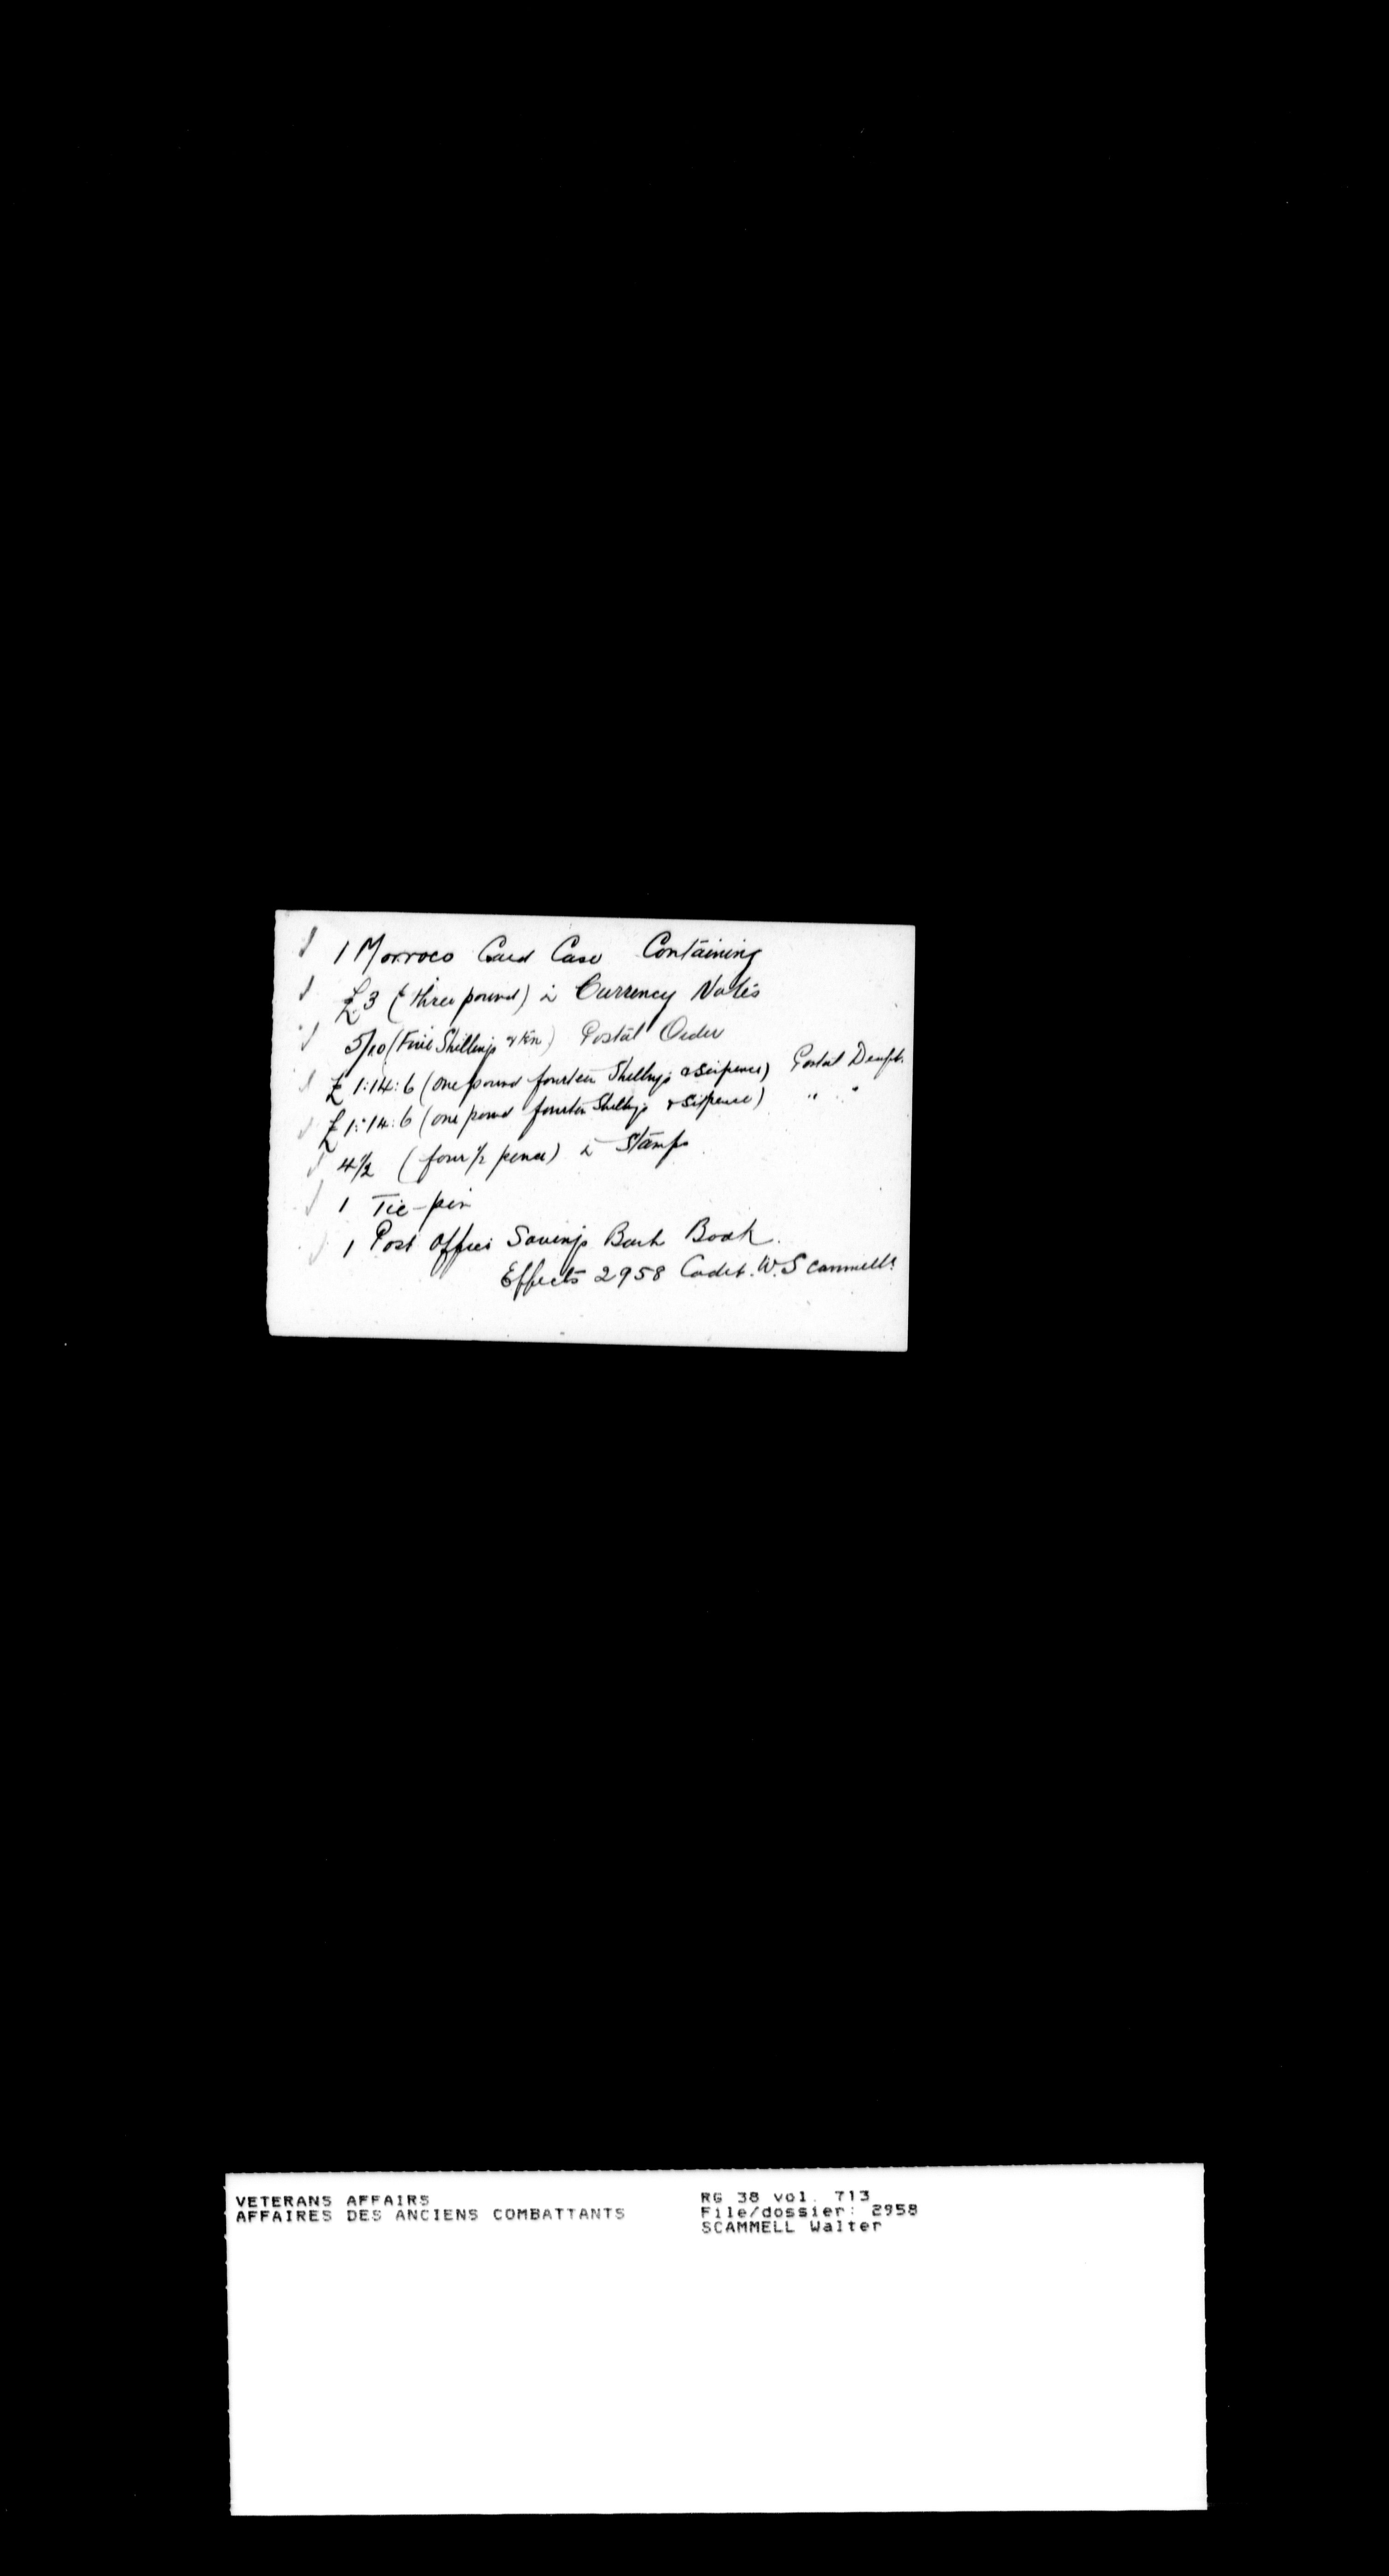 1 Morroco Card Case Containing
£3 (£ three pound) in Currency Notes
5/10 (Five Shillings & ten) Postal Order
£1:14:6 (one pound fourteen Shellings & Sixpence) Postal Draft.
£1:14:6 (one pound fourteen Shellings & Sixpence) " "
4½ (four ½ pence) in Stamps
1 Tie-pin
1 Post Office Savings Bank Book.
Effects 2958 Cadet. W. Scammells
VETERANS AFFAIRS
AFFAIRES DES ANCIENS COMBATTANTS
RG 38 vol. 713
File/dossier: 2958
SCAMMELL Walter